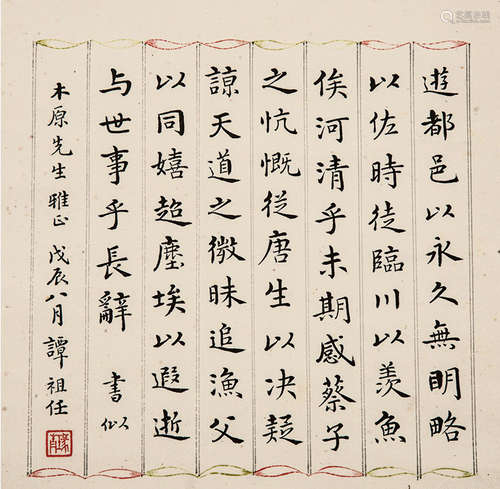 遊都邑以永久無明略
以佐時徒臨川以羨魚
俟河清乎未期感蔡子
之忼慨從唐生以决疑
諒天道之微昧追漁父
以同嬉超塵埃以遐逝
与世事乎長辭 書似
木原先生雅正 戊辰八月 譚祖任